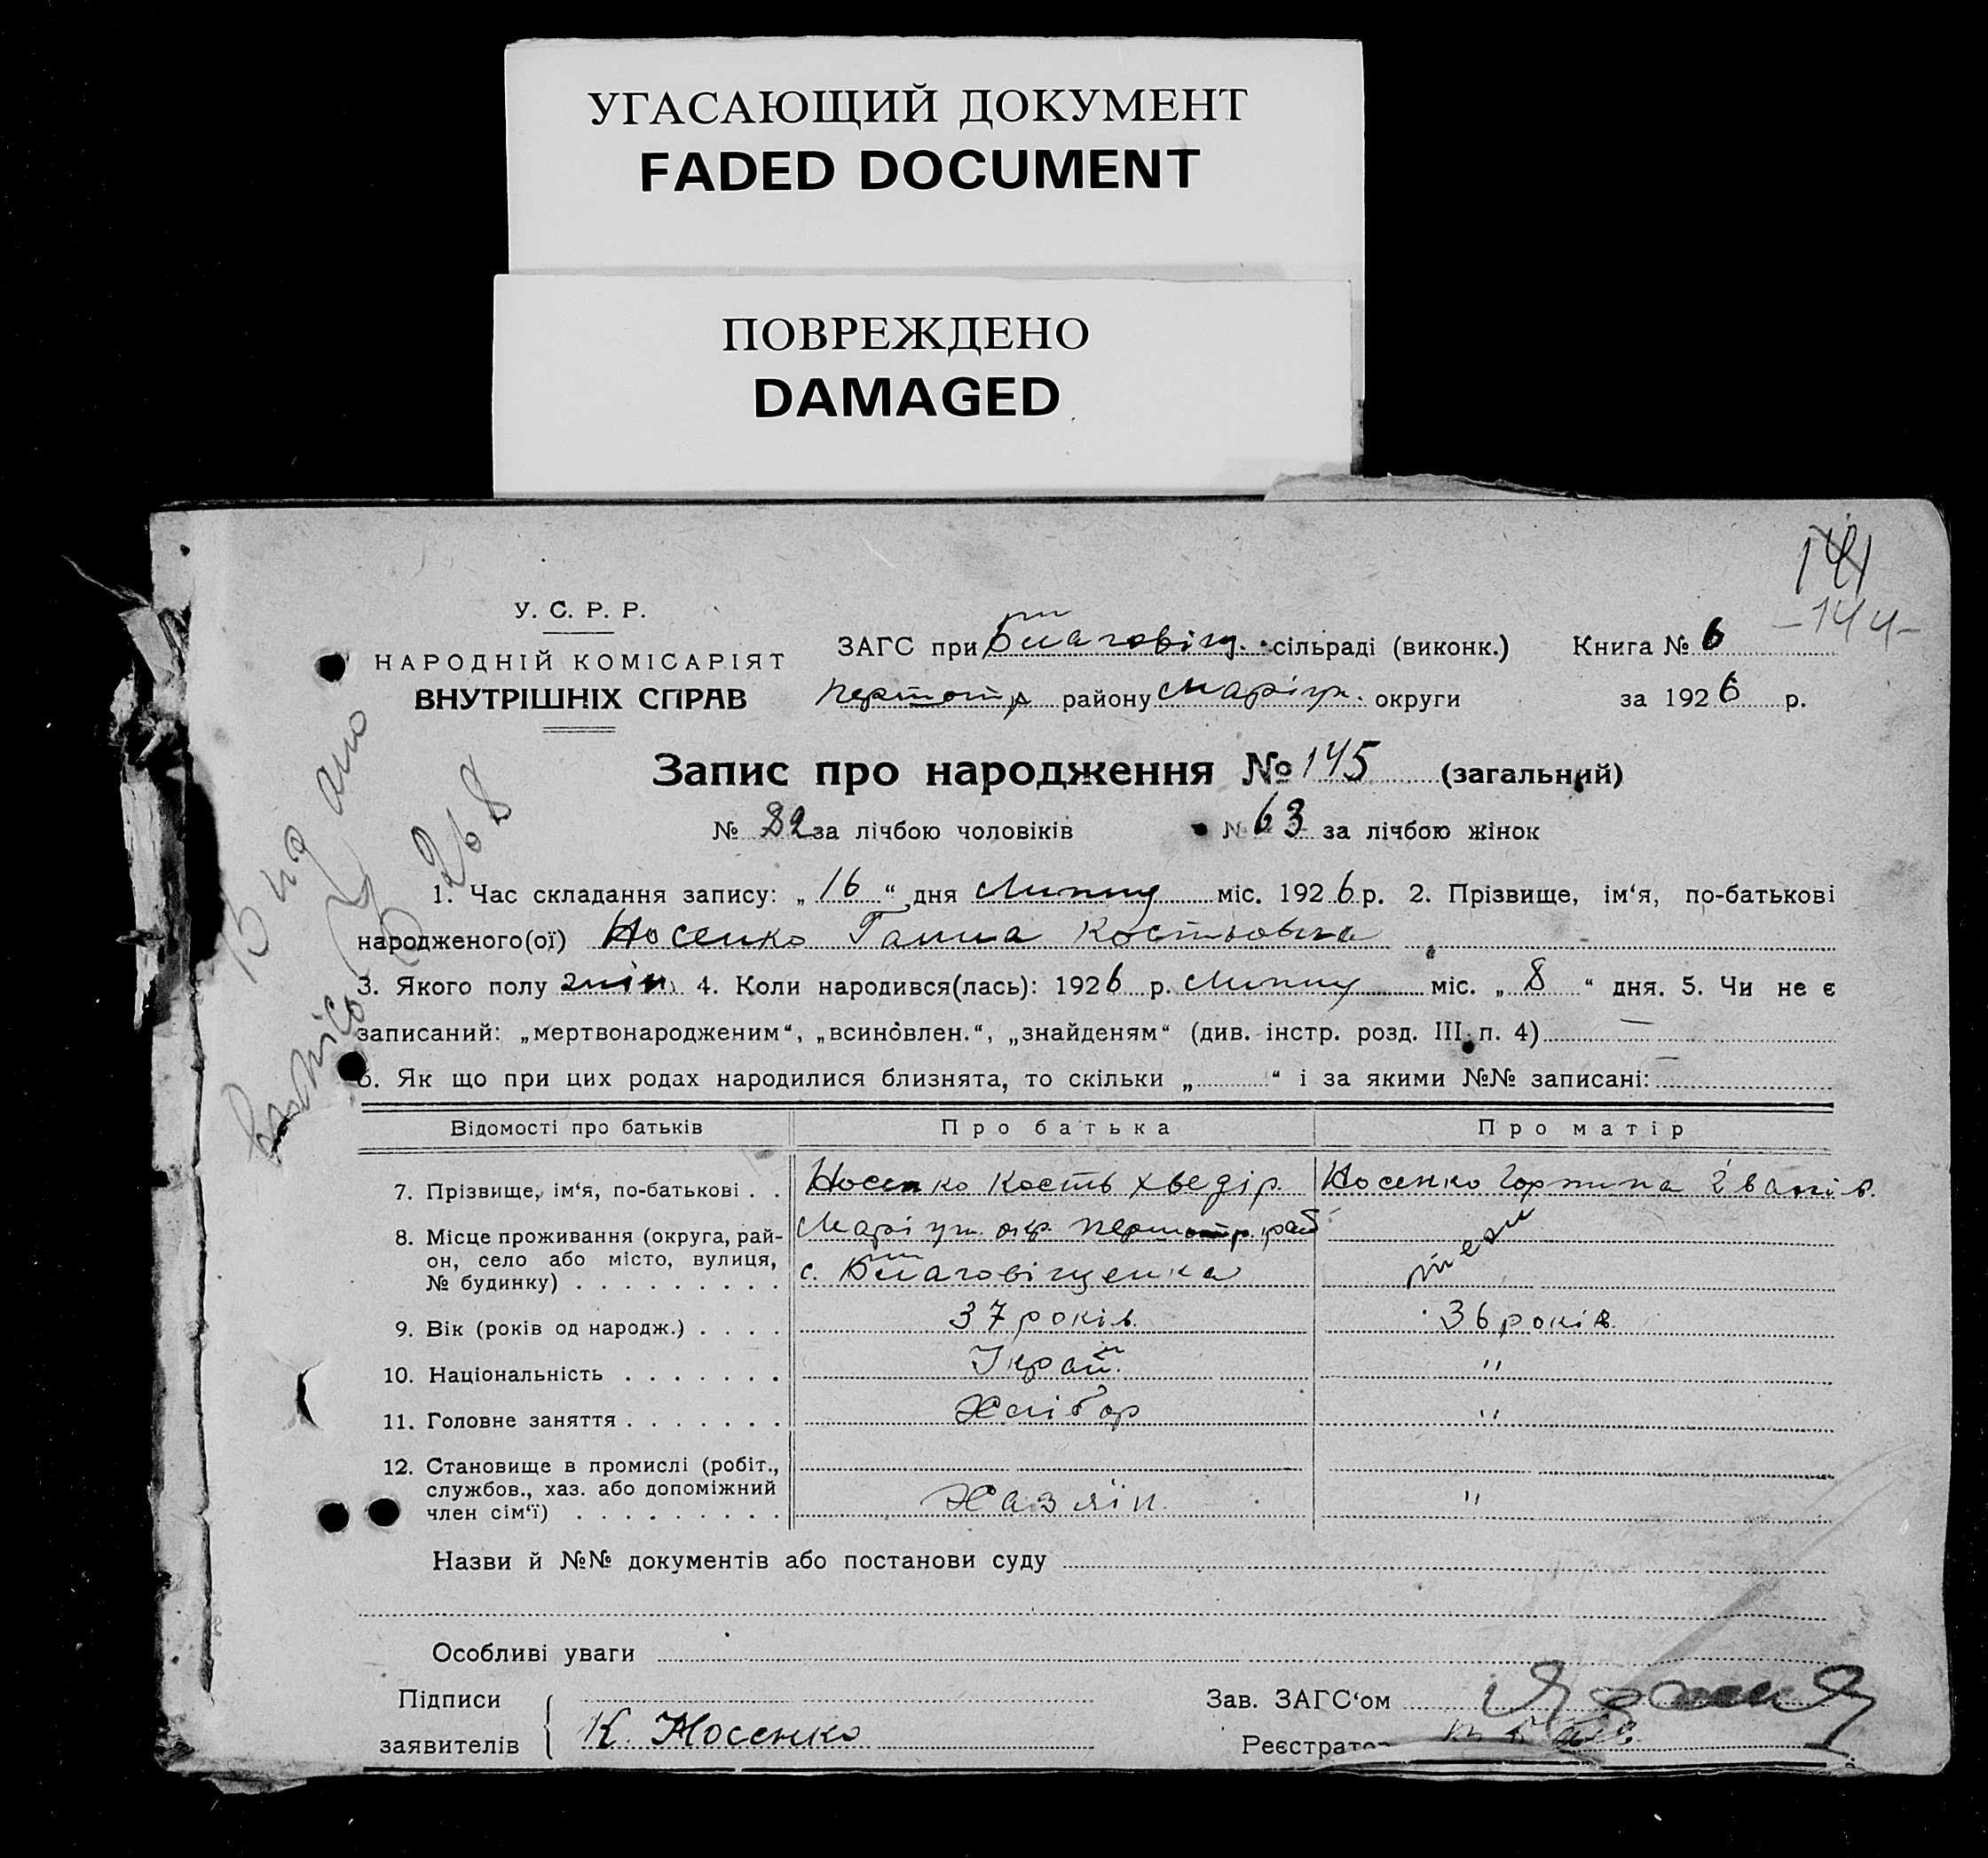 УГАСАЮЩИЙ ДОКУМЕНТ
FADED DOCUMENT
ПОВРЕЖДЕНО
DAMAGED
141
-144-
У. С. Р. Р.
НАРОДНІЙ КОМІСАРІЯТ
ВНУТРІШНІХ СПРАВ
ЗАГС при Благовіщ. сільраді (виконк.) Книга № 6
району Маріуп. округи за 1926 р.
Запис про народження № 145 (загальний)
№ 82 за лічбою чоловіків № 63 за лічбою жінок
268
1. Час складання запису: „ 16 “ дня Липня міс. 1926 р. 2. Прізвище, ім‘я, по-батькові
народженого(ої) Носенко Ганна Костьовна
3. Якого полу жін. 4. Коли народився(лась): 1926 р. Липня міс. „ 8 “ дня. 5. Чи не є
записаний: „мертвонародженим“, „всиновлен.“, „знайденям“ (див. інстр. розд. III п. 4) —
6. Як що при цих родах народилися близнята, то скільки „ “ і за якими №№ записані: —
Відомості про батьків Про батька Про матір
7. Прізвище, ім‘я, по-батькові . . Носенко Кость Хведір. Носенко Горпина Іванів.
8. Місце проживання (округа, рай- Маріуп. окр. район, село або місто, вулиця, с. Благовіщенка
№ будинку) . . . . . . . . .
9. Вік (років од народж.) . . . . 37 років. 36 років.
10. Національність . . . . . . . Україн. "
11. Головне заняття . . . . . . . Хлібор "
12. Становище в промислі (робіт.,
службов., хаз. або допоміжний Хазяїн. "
член сім‘ї) . . . . . . . . .
Назви й №№ документів або постанови суду
Особливі уваги
Підписи Зав. ЗАГС‘ом
заявителів К. Носенко Реєстратор